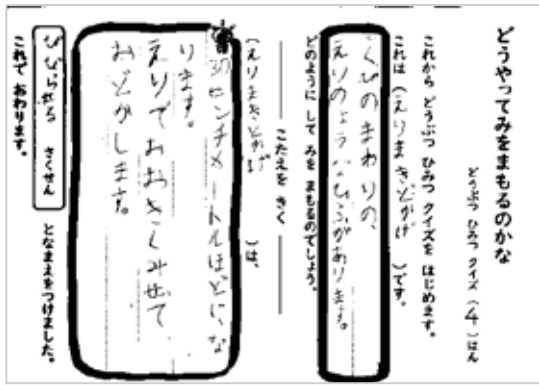 どうやってみをまもるのかな
どうぶつ ひみつ クイズ (4)はん
これから どうぶつ ひみつ クイズを はじめます。
これは (えりまきとかげ )です。
くびのまわりの、
えりのようなひふがあります。
どのように して みを まもるのでしょう。
こたえを きく
(えりまきとかげ )は、
30センチメートルほどに、な
ります。
えりでおおきくみせて
おどかします。
びびらせる さくせん となまえをつけました。
これで おわります。